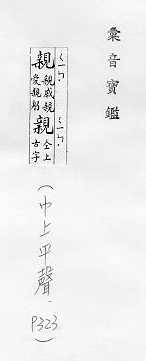 彙音寶鑑
親 ㄑㄧㄣ·
親戚親
愛親朋
親 ㄑㄧㄣ·
仝上
古字
(中上平聲.P323)